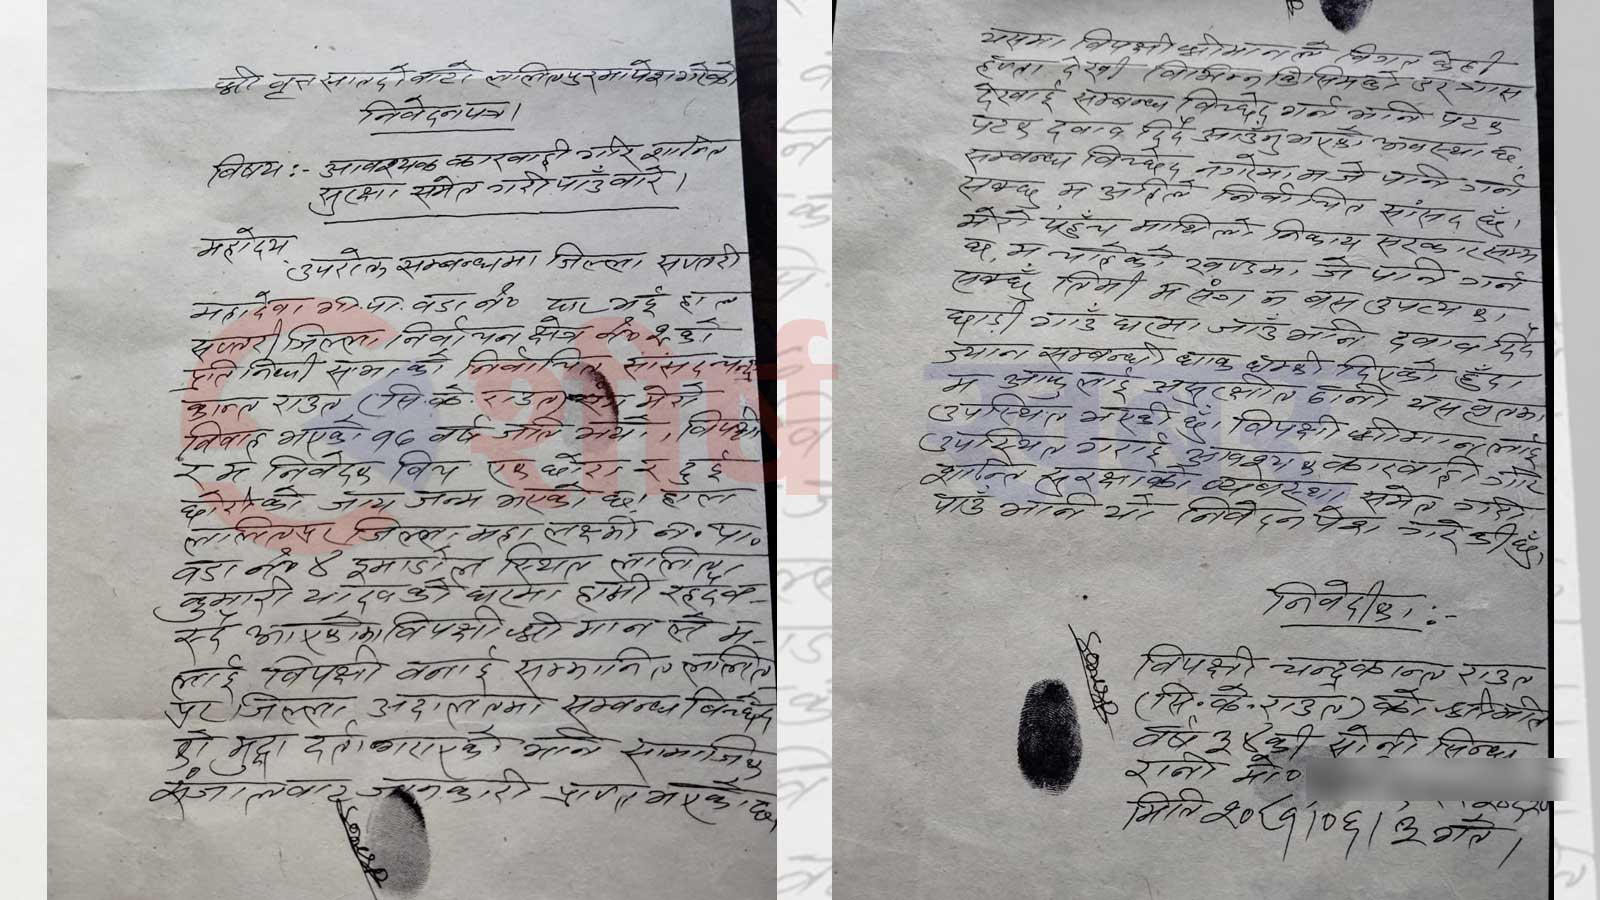 श्री वृत्त सातदोबाटो ललितपुरमा पेश गरेको
निवेदनपत्र।
विषय:- आवश्यक कारवाही गरि शान्ति
सुरक्षा समेत गरी पाँउ बारे।
महोदय,
उपरोक्त सम्बन्धमा जिल्ला सप्तरी
महादेवा गा.पा. वडा नं० घर भई हाल
सप्तरी जिल्ला निर्वाचन क्षेत्र नं० २ को
प्रतिनिधी सभाको निर्वाचित सांसद चन्द्र
कान्त राउत (सि.के.राउत) मेरो
विवाह भएको १७ वर्ष जति भयो। विपक्षी
र म निवेदक विच एक छोरा र दुई
छोरीको जाय जन्म भएको छ। हाल
ललितपुर जिल्ला महालक्ष्मी न.पा.
वडा नं० ४ इमाडोल स्थित ललिता
कुमारी यादवको घरमा हामी रहदै ब-
स्दै आएकोमा विपक्षी श्रीमानले म-
लाई विपक्षी बनाई सम्मानित ललित
पुर जिल्ला अदालतमा सम्बन्ध विच्छेद
को मुद्दा दर्ता गराएको भनि सामाजिक
संजालबाट जानकारी प्राप्त भएको छ,
यसमा विपक्षी श्रीमानले विगत केही
हप्ता देखी विभिन्न किसिमको डर त्रास
देखाई सम्बन्ध विच्छेद गर्न भनि पटक
पटक दवाव दिदै आउँनु भएको अवस्था छ,
सम्बन्ध विच्छेद नगरेमा म जे पनि गर्न
सक्छु म अहिले निर्वाचित सांसद हुँ।
मेरो पहुँच माथिलो निकाय सरकार सम्म
छ, म चाहेको खण्डमा जे पनि गर्न
सक्छु तिमी म संग न बस उपत्यका
छाडी गाउँ घरमा जाउँ भनि दवाव दिदै
ज्यान सम्बन्धी धाक धम्की दिएको हुँदा
म आफुलाई असुरक्षीत ठानी यस वृत्तमा
उपस्थित भएकी छुँ। विपक्षी श्रीमानलाई
उपस्थित गराई आवश्यक कारवाही गरि
शान्ति सुरक्षाको व्यवस्था समेत गरी
पाँउ भनि यो निवेदन पेश गरेकी छु,
निवेदीका:-
विपक्षी चन्द्रकान्त राउत
(सि.के.राउत) को श्रीमति
वर्ष ३४ की सोनी सिन्धा
रानी मो०
मिति २०८१।०६।३ गते।
शीर्ष खबर